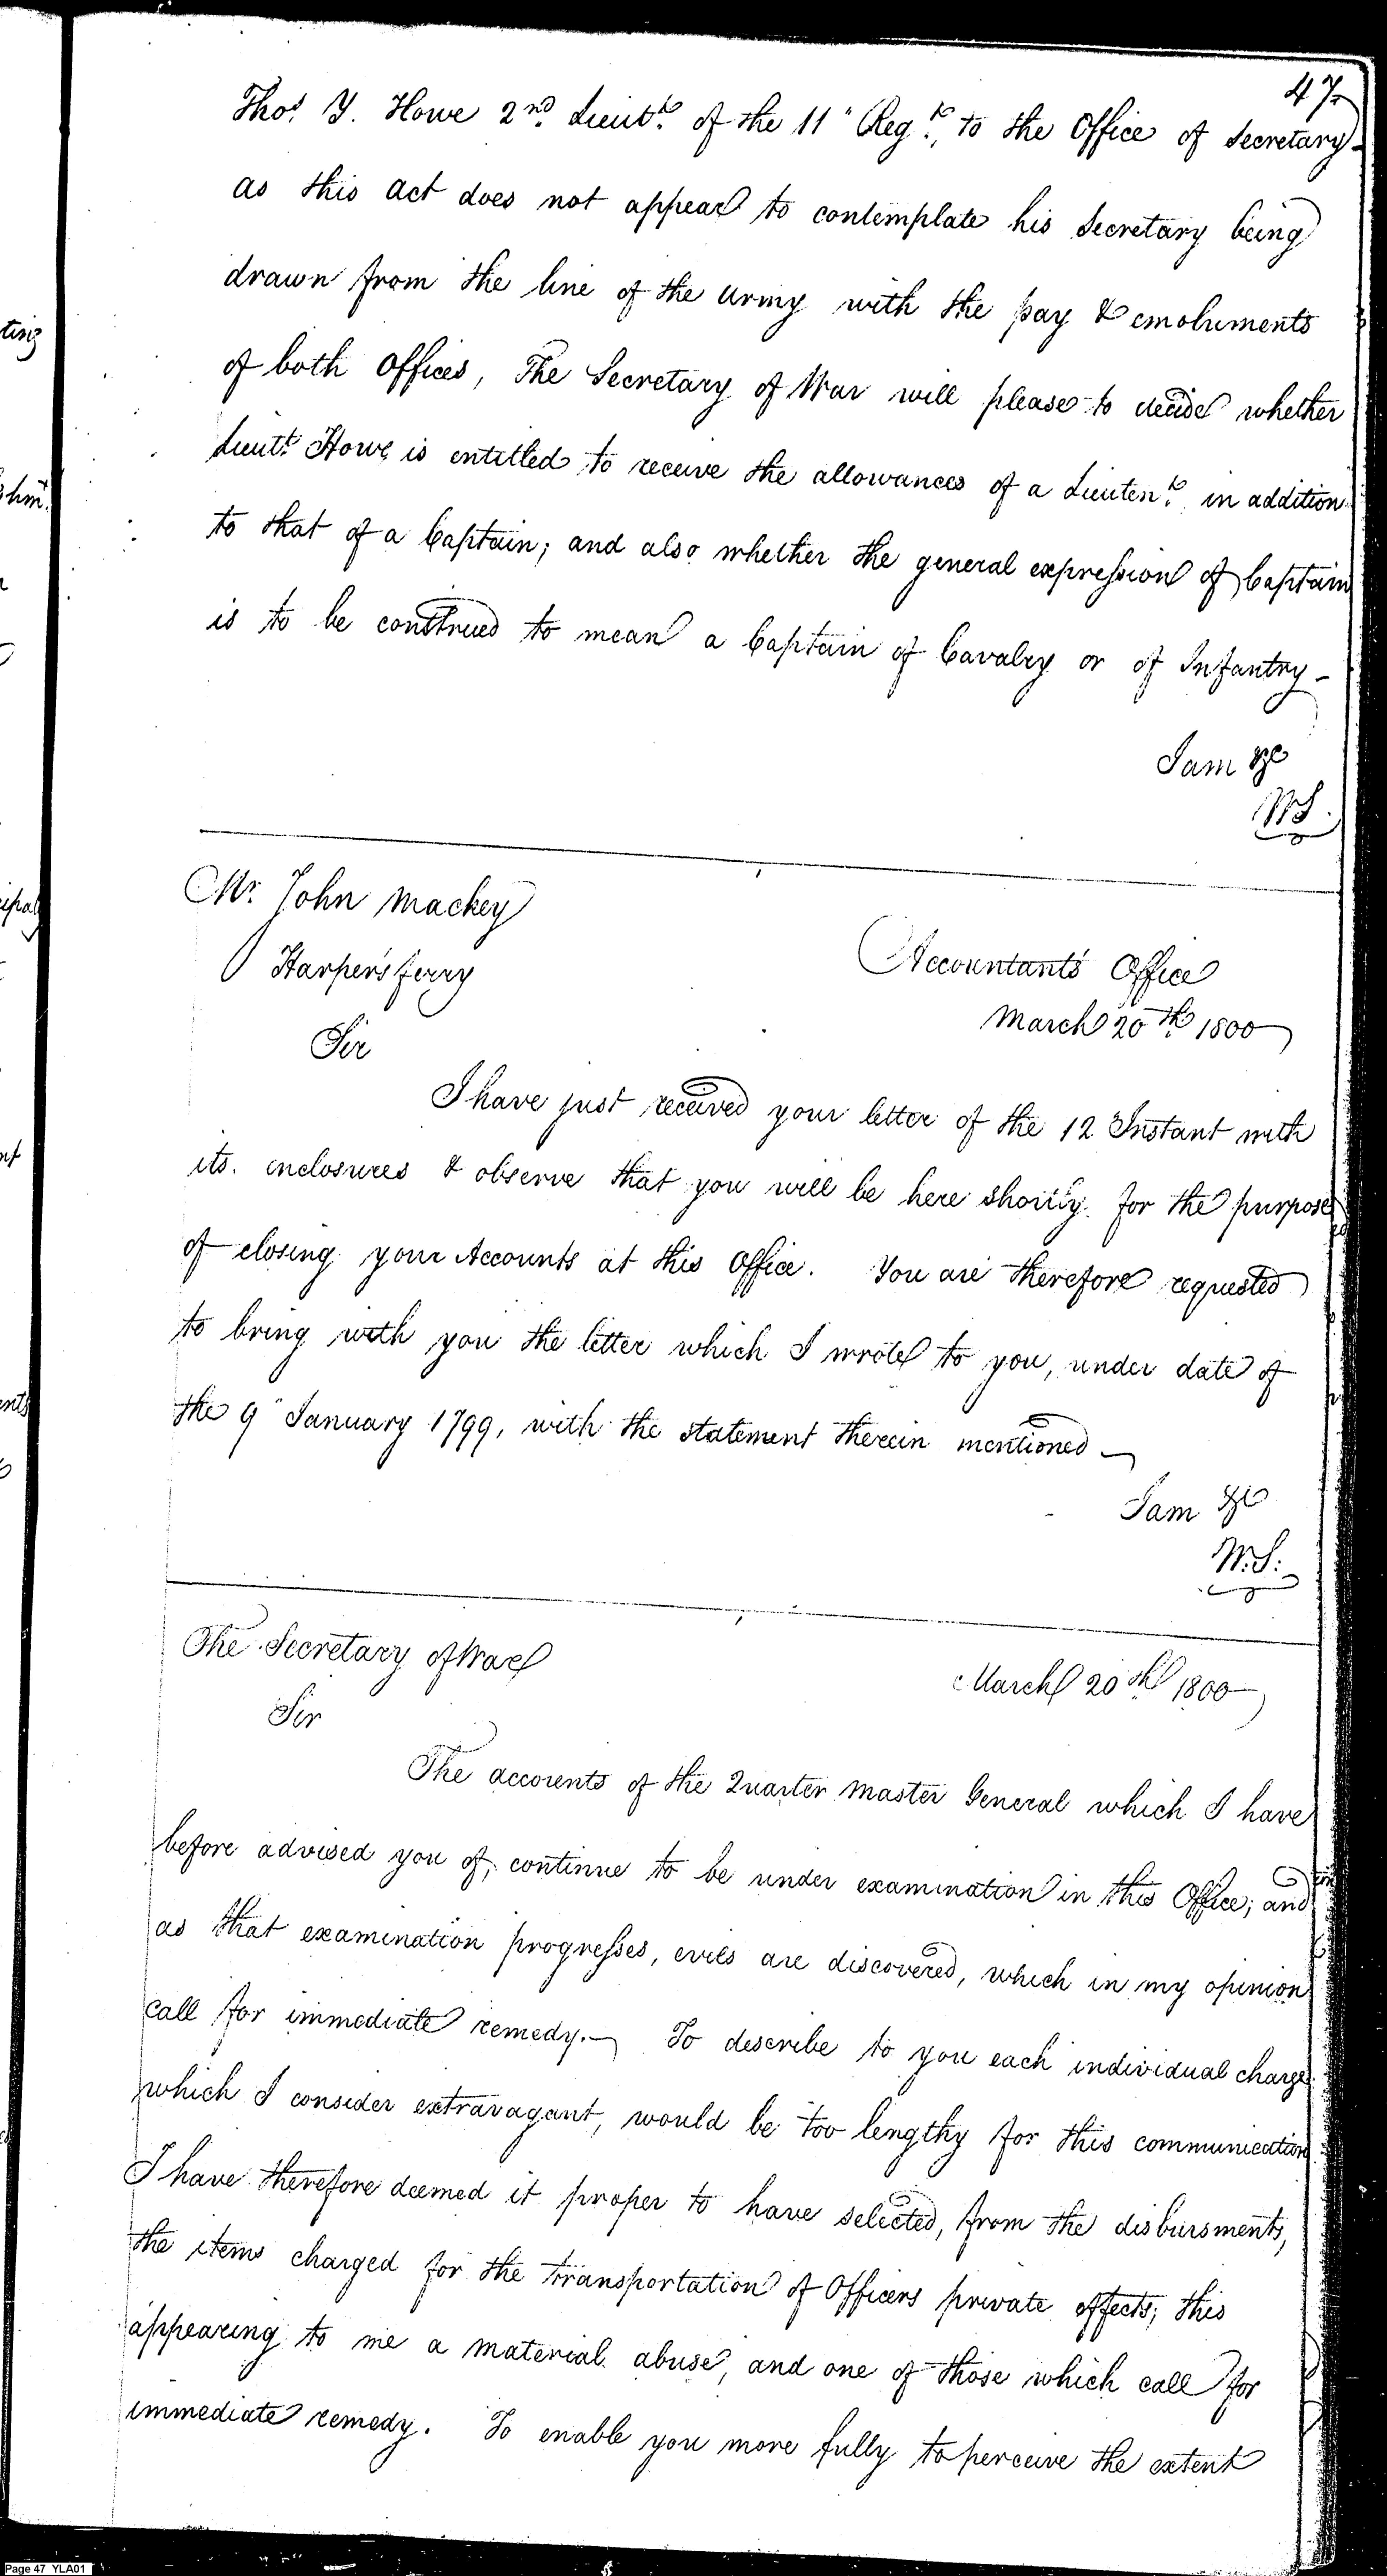 47
Thos. Y. Howe 2nd. Lieutt. of the 11" Regt., to the Office of Secretary -
as this act does not appear to contemplate his Secretary being
drawn from the line of the army with the pay & emoluments
of both Offices, The Secretary of War will please to decide whether
Lieutt. Howe is entitled to receive the allowances of a Lieutent. in addition
to that of a Captain; and also whether the general expression of Captain
is to be construed to mean a Captain of Cavalry or of Infantry -
I am &c
WS.
Mr. John Mackey
Harpers ferry
Accountants Office
March 20th 1800
Sir
I have just received your letter of the 12 Instant with
its enclosures & observe that you will be here shortly for the purpose
of closing your Accounts at this Office. You are therefore requested
to bring with you the letter which I wrote to you, under date of
the 9" January 1799, with the statement therein mentioned —
I am &c
W.S.
The Secretary of War
March 20th 1800
Sir
The accounts of the Quarter Master General which I have
before advised you of, continue to be under examination in this Office; and
as that examination progresses, evils are discovered, which in my opinion
call for immediate remedy. — To describe to you each individual charge
which I consider extravagant, would be too lengthy for this communication
I have therefore deemed it proper to have selected, from the disbursments,
the items charged for the transportation of Officers private effects; this
appearing to me a material abuse, and one of those which call for
immediate remedy. To enable you more fully to perceive the extent
Page 47 YLA01